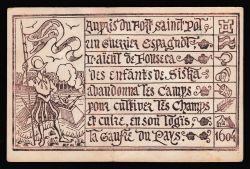 Auprès du Fort Saint Pol
un Guerrier Espagnol
Traitant de Fonseca
des enfants de Siska
abandonna les Camps
pour cultiver les Champs
et cuire, en son logis,
la Gaufre du Pays.
1604